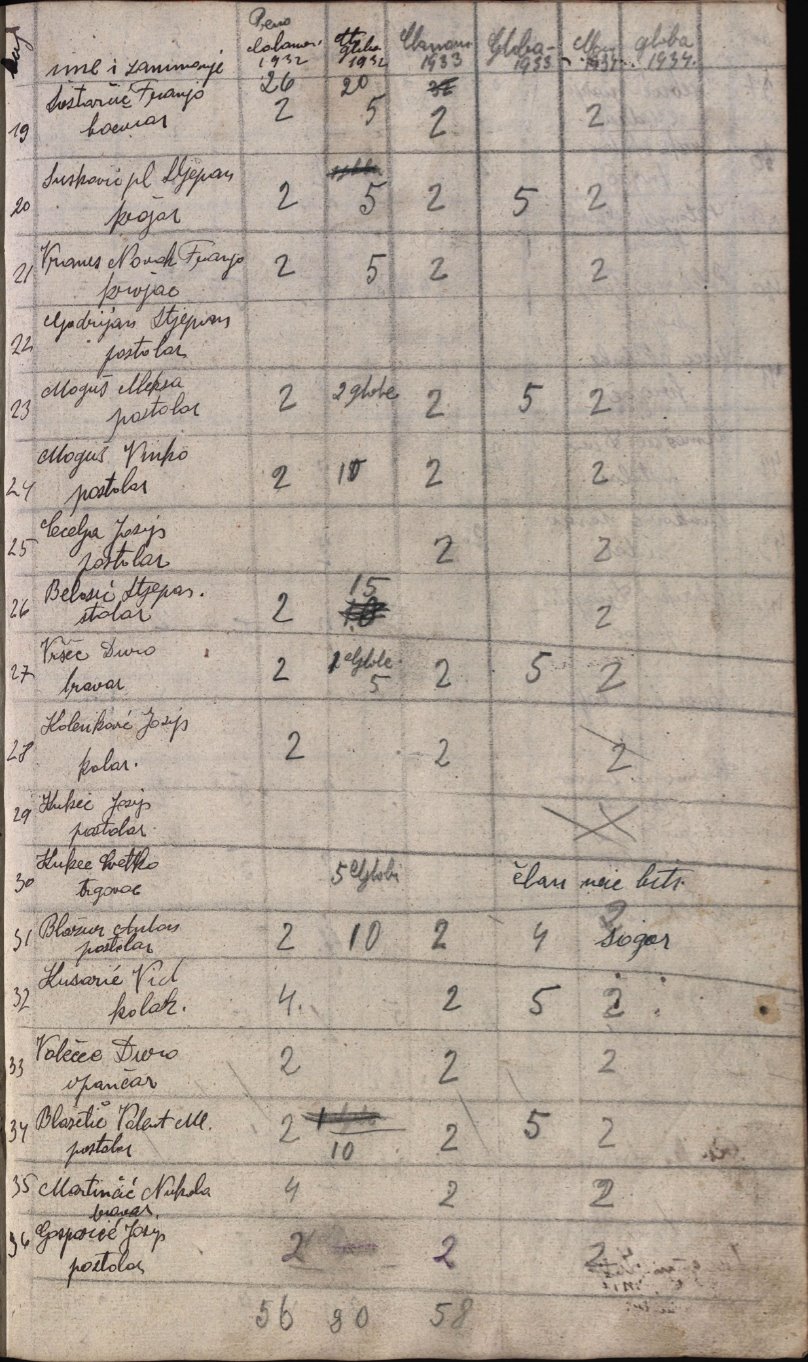 ime i zanimanje 1932 globa 1932 1933 Globa 1933 1934 globa 1934.
26 20
19 Šoštarić Franjo 2 5 2 2
20 Susković pl Stjepan 2 5 2 5 2
krojač
21 Vranes Novak Franjo 2 5 2 2
krojač
22 Godrijan Stjepan
postolar
23 Moguš Aleksa 2 2 globe 2 5 2
postolar
24 Moguš Vinko 2 10 2 2
postolar
25 Cecelja Josip 2 2
postolar
26 Belosić Stjepan. 2 15 2
stolar
27 Vršec Đuro 2 1 Globe 5 2 5 2
bravar
28 Kolenković Josip 2 2 2
kolar.
29 Kukec Josip
postolar
30 Kukec Cvetko 5 Globi član neće biti
trgovac
31 Blažun Antun 2 10 2 4 2
postolar
32 Husarić Vid 4. 2 5 2
kolar.
33 Valečec Đuro 2 2 2
opančar
34 Blažetić Valent M. 2 10 2 5 2
postolar
35 Martinčić Nikola 4 2 2
bravar.
36 Gasparić Josip 2 2 2
postolar
56 90 58